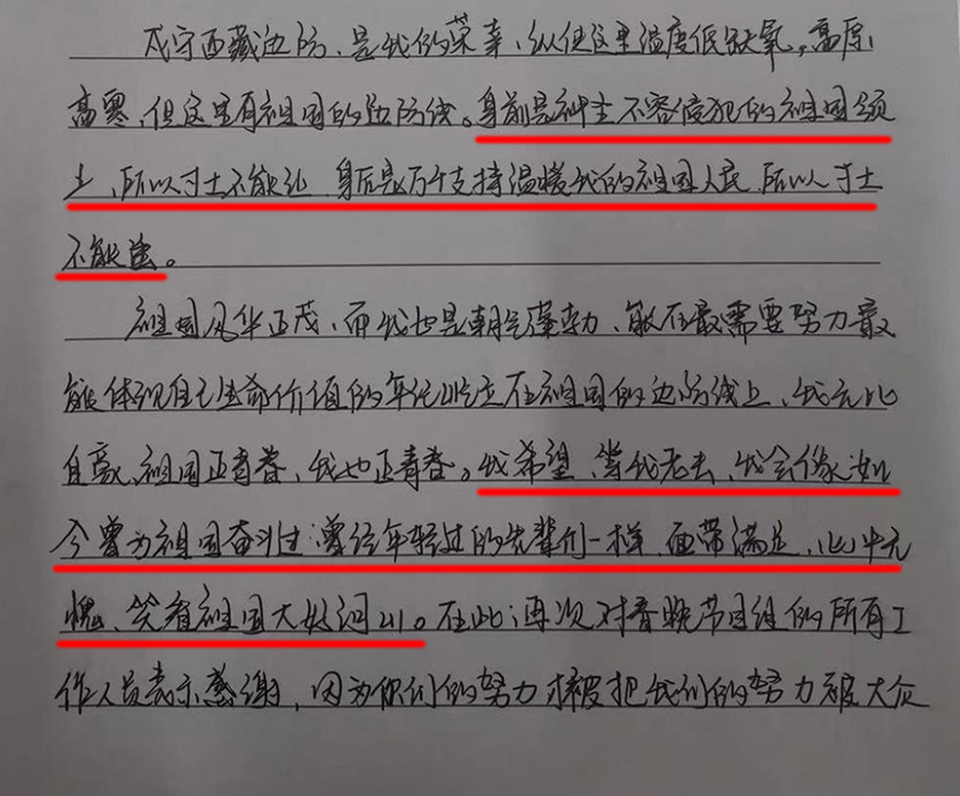 戍守西藏边防、是我的荣幸、纵使这里温度低缺氧，高原
高寒、但这里有祖国的边防线。身前是神圣不容侵犯的祖国领
土、所以寸土不能让、身后是万千支持温暖我的祖国人民、所以寸土
不能丢。
祖国风华正茂、而我也是朝气蓬勃、能在最需要努力最
能体现自己生命价值的年纪屹立在祖国的边防线上、我无比
自豪、祖国正青春、我也正青春。我希望、当我老去、我会像如
今曾为祖国奋斗过、曾经年轻过的先辈们一样、面带满足、心中无
愧、笑看祖国大好河山。在此，再次对春晚节目组的所有工
作人员表示感谢、因为你们的努力才被把我们的努力被大众